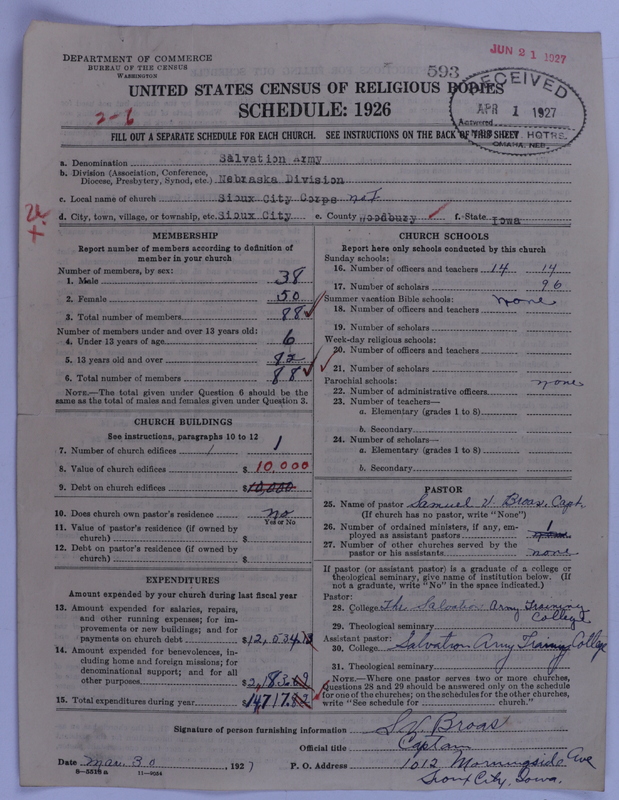 DEPARTMENT OF COMMERCE
BUREAU OF THE CENSUS
WASHINGTON
593
JUN 21 1927
RECEIVED
APR 1 1927
Answered
HQTRS.
OMAHA, NEB.
UNITED STATES CENSUS OF RELIGIOUS BODIES
SCHEDULE: 1926
2-6
FILL OUT A SEPARATE SCHEDULE FOR EACH CHURCH. SEE INSTRUCTIONS ON THE BACK OF THIS SHEET
a. Denomination Salvation Army
b. Division (Association, Conference, Diocese, Presbytery, Synod, etc.) Nebraska Division
c. Local name of church Sioux City Corps not
d. City, town, village, or township, etc. Sioux City e. County Woodbury f. State Iowa
MEMBERSHIP
Report number of members according to definition of
member in your church
Number of members, by sex:
1. Male 38
2. Female 50
3. Total number of members 88
Number of members under and over 13 years old:
4. Under 13 years of age 6
5. 13 years old and over 82
6. Total number of members 88
NOTE.—The total given under Question 6 should be
same as the total of males and females given under Question 3.
CHURCH BUILDINGS
See instructions, paragraphs 10 to 12
7. Number of church edifices 1
8. Value of church edifices $ 10 000
9. Debt on church edifices $ 10,000
10. Does church own pastor's residence? no
Yes or No
11. Value of pastor's residence (if owned by
church) $
12. Debt on pastor's residence (if owned by
church) $
EXPENDITURES
Amount expended by your church during last fiscal year
13. Amount expended for salaries, repairs,
and other running expenses; for im-
provements or new buildings; and for
payments on church debt $ 12,034.13
14. Amount expended for benevolences, in-
cluding home and foreign missions; for
denominational support; and for all
other purposes $ 2,183.69
15. Total expenditures during year $ 14,717.82
CHURCH SCHOOLS
Report here only schools conducted by this church
Sunday schools:
16. Number of officers and teachers 14 14
17. Number of scholars 96
Summer vacation Bible schools: none
18. Number of officers and teachers
19. Number of scholars
Week-day religious schools:
20. Number of officers and teachers
21. Number of scholars
Parochial schools: none
22. Number of administrative officers
23. Number of teachers—
a. Elementary (grades 1 to 8)
b. Secondary
24. Number of scholars—
a. Elementary (grades 1 to 8)
b. Secondary
PASTOR
25. Name of pastor Samuel V. Broas, Capt.
(If church has no pastor, write "None")
26. Number of ordained ministers, if any, em-
ployed as assistant pastors 1
27. Number of other churches served by the
pastor or his assistants none
If pastor (or assistant pastor) is a graduate of a college or
theological seminary, give name of institution below. (If
not a graduate, write "No" in the space indicated.)
Pastor:
28. College The Salvation Army Training
College
29. Theological seminary
Assistant pastor:
30. College Salvation Army Training College
31. Theological seminary
NOTE.—Where one pastor serves two or more churches,
Questions 28 and 29 should be answered only on the schedule
for one of the churches; on the schedules for the other churches,
write "See schedule for church."
Signature of person furnishing information S.V. Broas
Official title Captain
Date Mar. 30, 1927 P. O. Address 1012 Morningside Ave
Sioux City, Iowa.
11—9054